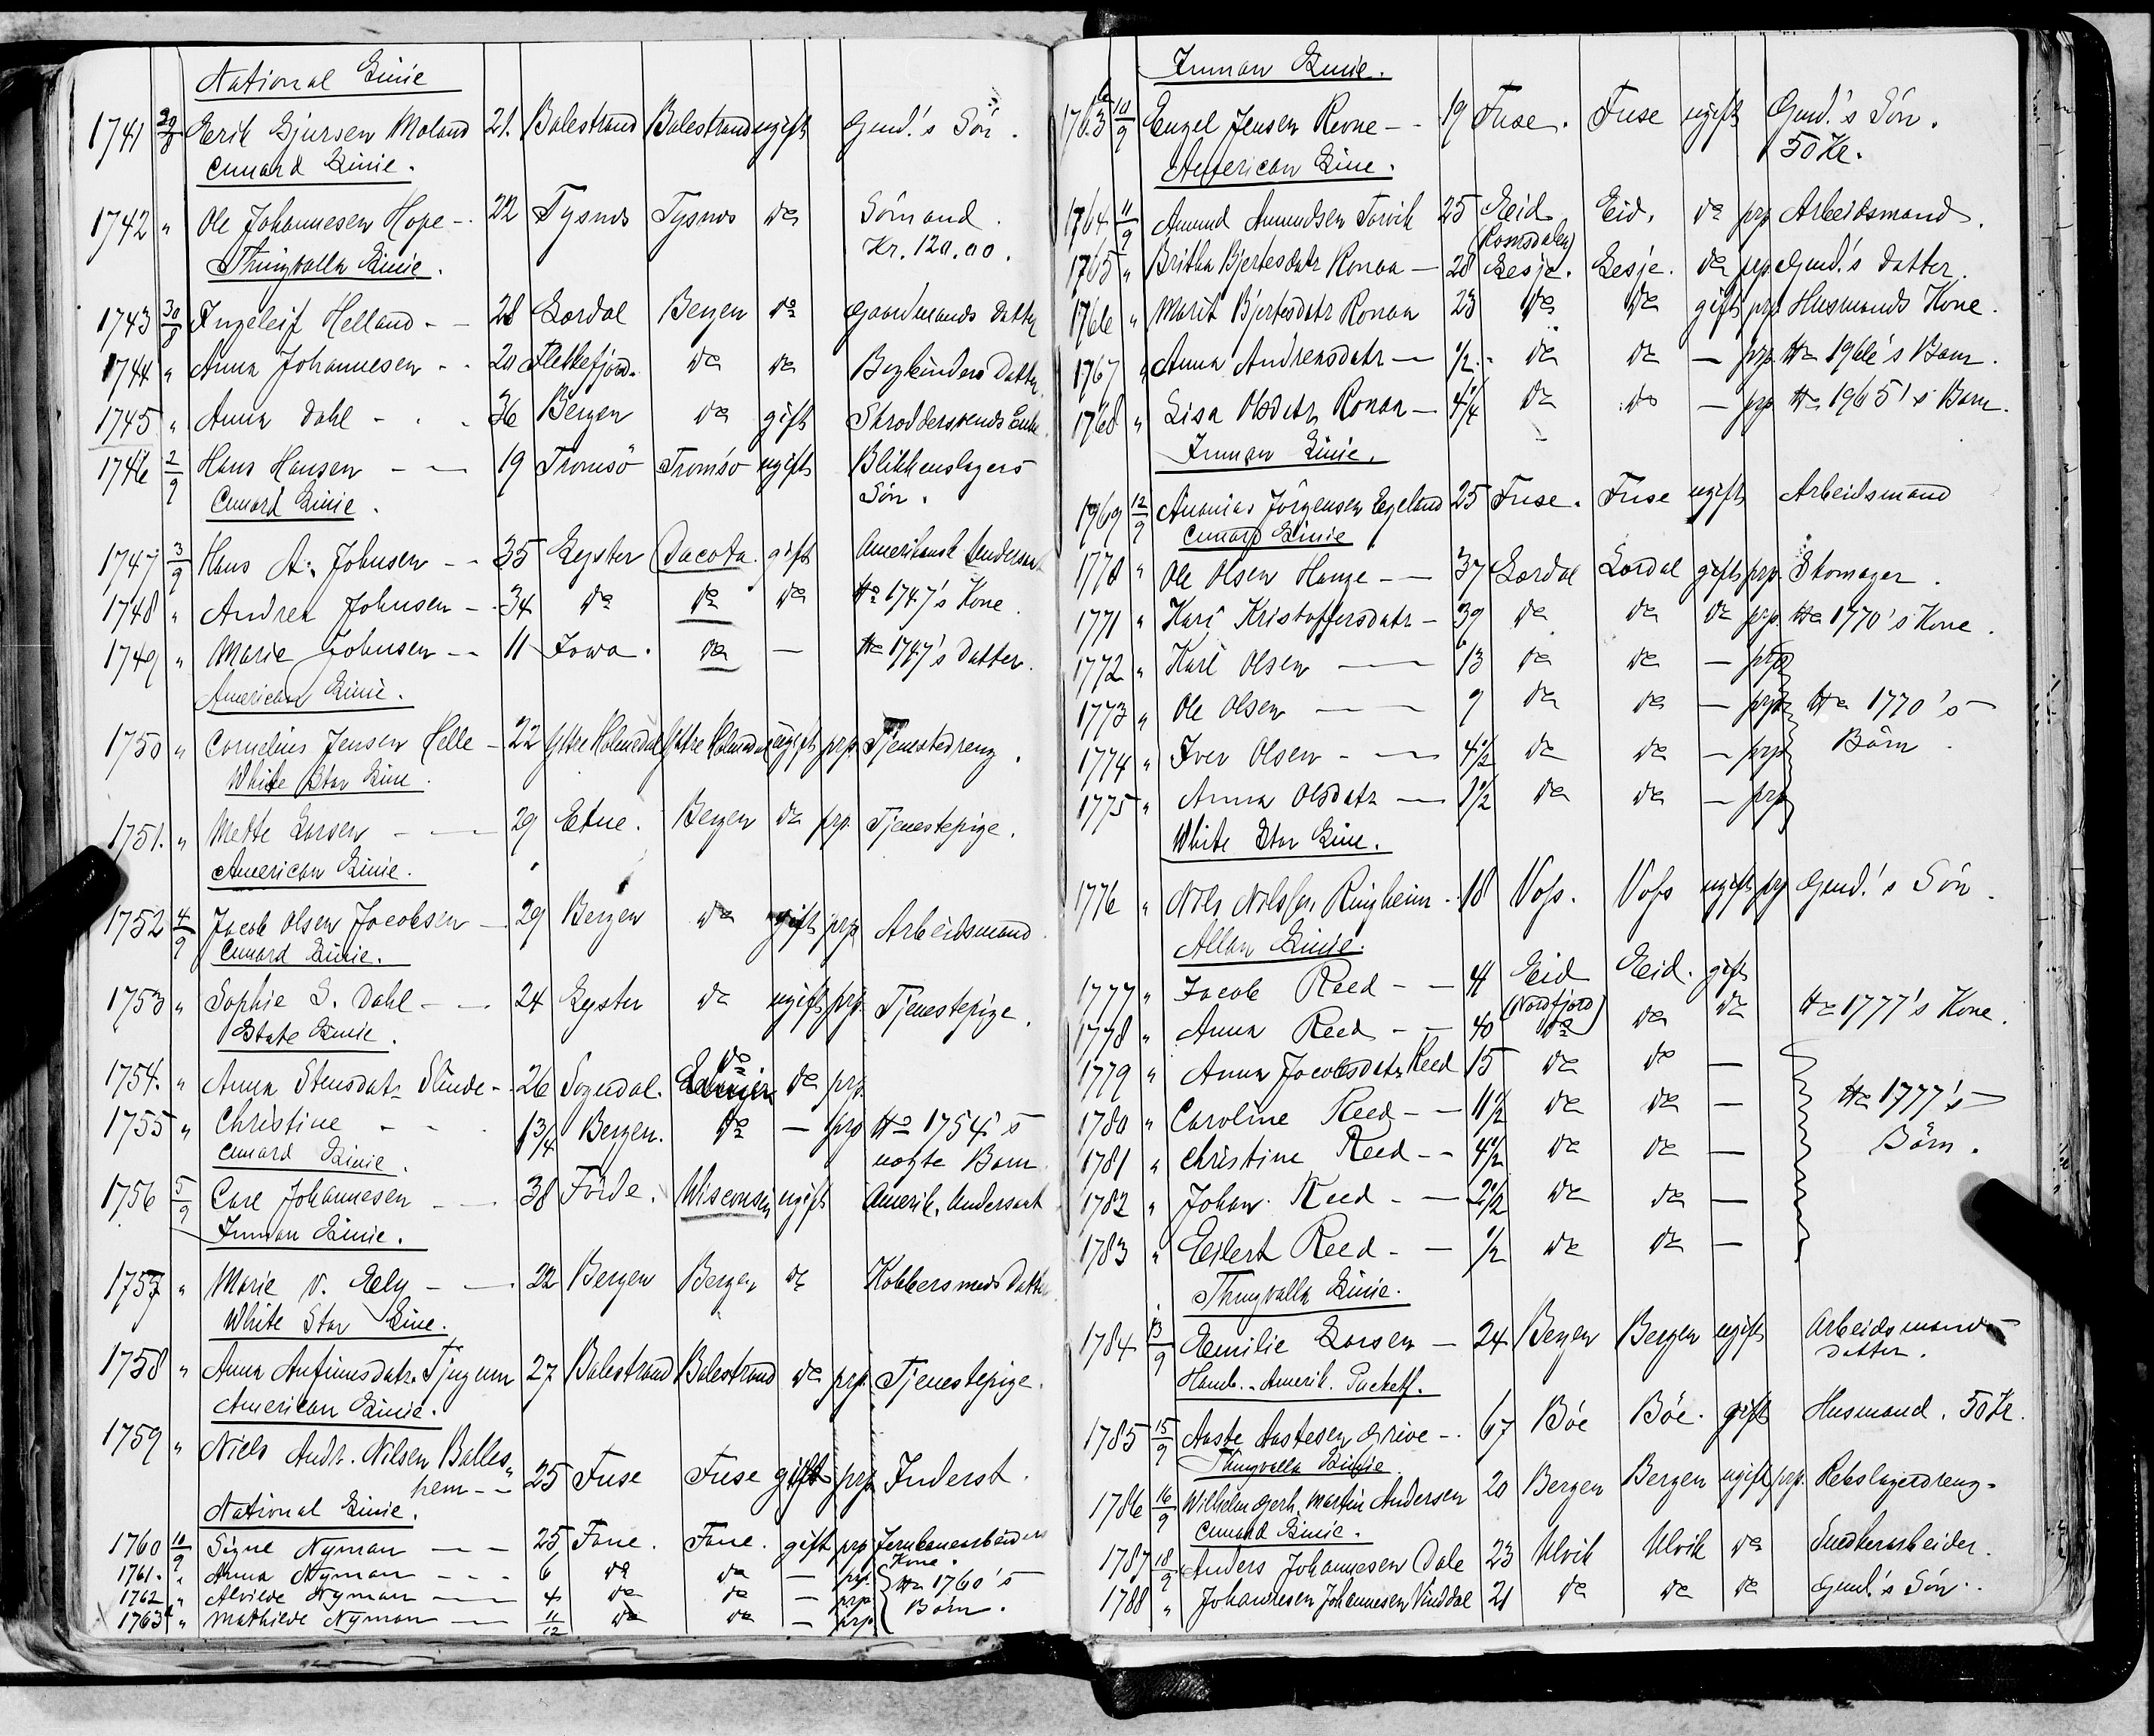 National Linie
1741 29/8 Erik Gjursen Moland 21. Balestrand Balestrand ugift Gmd.'s Søn.
Cunard Linie.
1742 " Ole Johannesen Hope - 22 Tysnæs Tysnæs do Sömand.
Kr. 120.00.
Thingvalla Linie.
1743 30/8 Ingeleif Helland - - 28 Lærdal Bergen do Gaardmands Datter
1744 " Anna Johannesen - - 20 Flekkefjord. do do Bogbinders Datter
1745 " Anna Dahl - - - 36 Bergen do gift Skræddersvends Enke
1746 2/9 Hans Hansen - - 19 Tromsö Tromsö ugift Blikkenslagers
Søn.
Cunard Linie.
1747 3/9 Hans A. Johnsen - - 35 Lyster Dacota. gift Amerikansk Undersaat
1748 " Andrea Johnsen - - 34 do do do No 1747's Kone.
1749 " Marie Johnsen - - 11 Iowa. do - No 1747's Datter.
American Linie.
1750 " Cornelius Jensen Helle - 22 Ytre Holmedal Ytre Holmedal ugift prp. Tjenestedreng.
White Star Line.
1751. " Mette Larsen - - 29 Etne. Bergen do prp. Tjenestepige.
American Linie.
1752 4/9 Jacob Olsen Jacobsen - 29 Bergen do gift prp Arbeidsmand.
Cunard Linie.
1753 " Sophie S. Dahl - - 24 Lyster do ugift prp. Tjenestepige.
State Linie.
1754. " Anna Stensdatr Slinde - 26 Sogndal. do do prp
1755 " Christine - - - 1 3/4 Bergen. do - prp No 1754's
uægte Barn.
Cunard Linie.
1756 5/9 Carl Johannesen - - 38 Förde. Wisconsin ugift Amerik. Undersaat
Inman Linie.
1757 " Marie v. Eely - - 22 Bergen Bergen do Kobbersmeds Datter
White Star Line.
1758 " Anna Anfinnsdatr. Tjugum 27 Balestrand Balestrand do prp. Tjenestepige.
American Linie.
1759 " Niels Andr. Nilsen Balles"
hem - - 25 Fuse Fuse gift prp Inderst.
National Linie.
1760 10/9 Signe Nyman - - 25 Fane. Fane. gift prp Jernbanearbeiders
Kone.
1761. " Anna Nyman - - - 6 do do - prp. No 1760's
1762 " Alvilde Nyman - - 4 do do - prp Børn.
1763 " Mathilde Nyman - - 11/12 do do - prp.
Inman Linie.
1763 b 10/9 Engel Jensen Revne - - 19 Fuse. Fuse ugift Gmd.'s Søn.
50 Kr.
American Line.
1764 11/9 Amund Amundsen Torvik 25 Eid Eid. do prp Arbeidsmand.
(Romsdalen)
1765 " Britha Bjertesdatr Ronaa - 28 Lesje. Lesje. do prp Gmd.'s Datter.
1766 " Marit Bjertesdatr Ronaa 23 do do gift prp. Husmands Kone.
1767 " Anna Andreasdatr - 1/2 - do do - prp. No 1966's Barn.
1768 " Lisa Olsdatr Ronaa - 4 1/4 do do - prp No 1965's Barn.
Inman Linie.
1769 12/9 Ananias Jörgensen Egeland 25 Fuse. Fuse ugift Arbeidsmand
Cunard Linie
1770 " Ole Olsen Hauge - - 37 Lærdal Lærdal gift prp. Skomager.
1771 " Kari Kristoffersdatr - 39 do do do prp. No 1770's Kone.
1772 " Kari Olsen - 13 do do - prp
1773 " Ole Olsen - - 9 do do - prp. No 1770's
1774 " Iver Olsen - - 4 1/2 do do - prp Børn.
1775 " Anna Olsdatr - 1 1/2 do do - prp
White Star Line.
1776 " Nils Nilssen Ringheim - 18 Voss. Voss ugift prp Gmd.'s Søn.
Allan Linie.
1777 " Jacob Reed - - 41 Eid Eid. gift
(Nordfjord)
1778 " Anna Reed - - 40 do do do No 1777's Kone.
1779 " Anna Jacobsdatr Reed 15 do do -
1780 " Caroline Reed - - 11 1/2 do do - No 1777's
1781 " Christine Reed - - 4 1/2 do do - Børn.
1782 " Johan Reed - - 2 1/2 do do -
1783 " Eilert Reed - - 1/2 do do -
Thingvalla Linie.
1784 13/9 Emilie Larsen - 24 Bergen Bergen ugift Arbeidsmands
datter.
Hamb.-Amerik. Packetf.
1785 15/9 Aaste Aastesen Grive - . 67 Böe Böe. gift Husmand. 50 Kr.
Thingvalla Linie
1786 16/9 Wilhelm Gerh. Martin Andersen 20 Bergen Bergen ugift prp. Rebslagerdreng.
Cunard Linie.
1787 18/9 Anders Johannesen Dale 23 Ulvik Ulvik do Snedkerarbeider.
1788 " Johannesen Johannesen Vinddal 21 do do do Gmd.'s Søn.